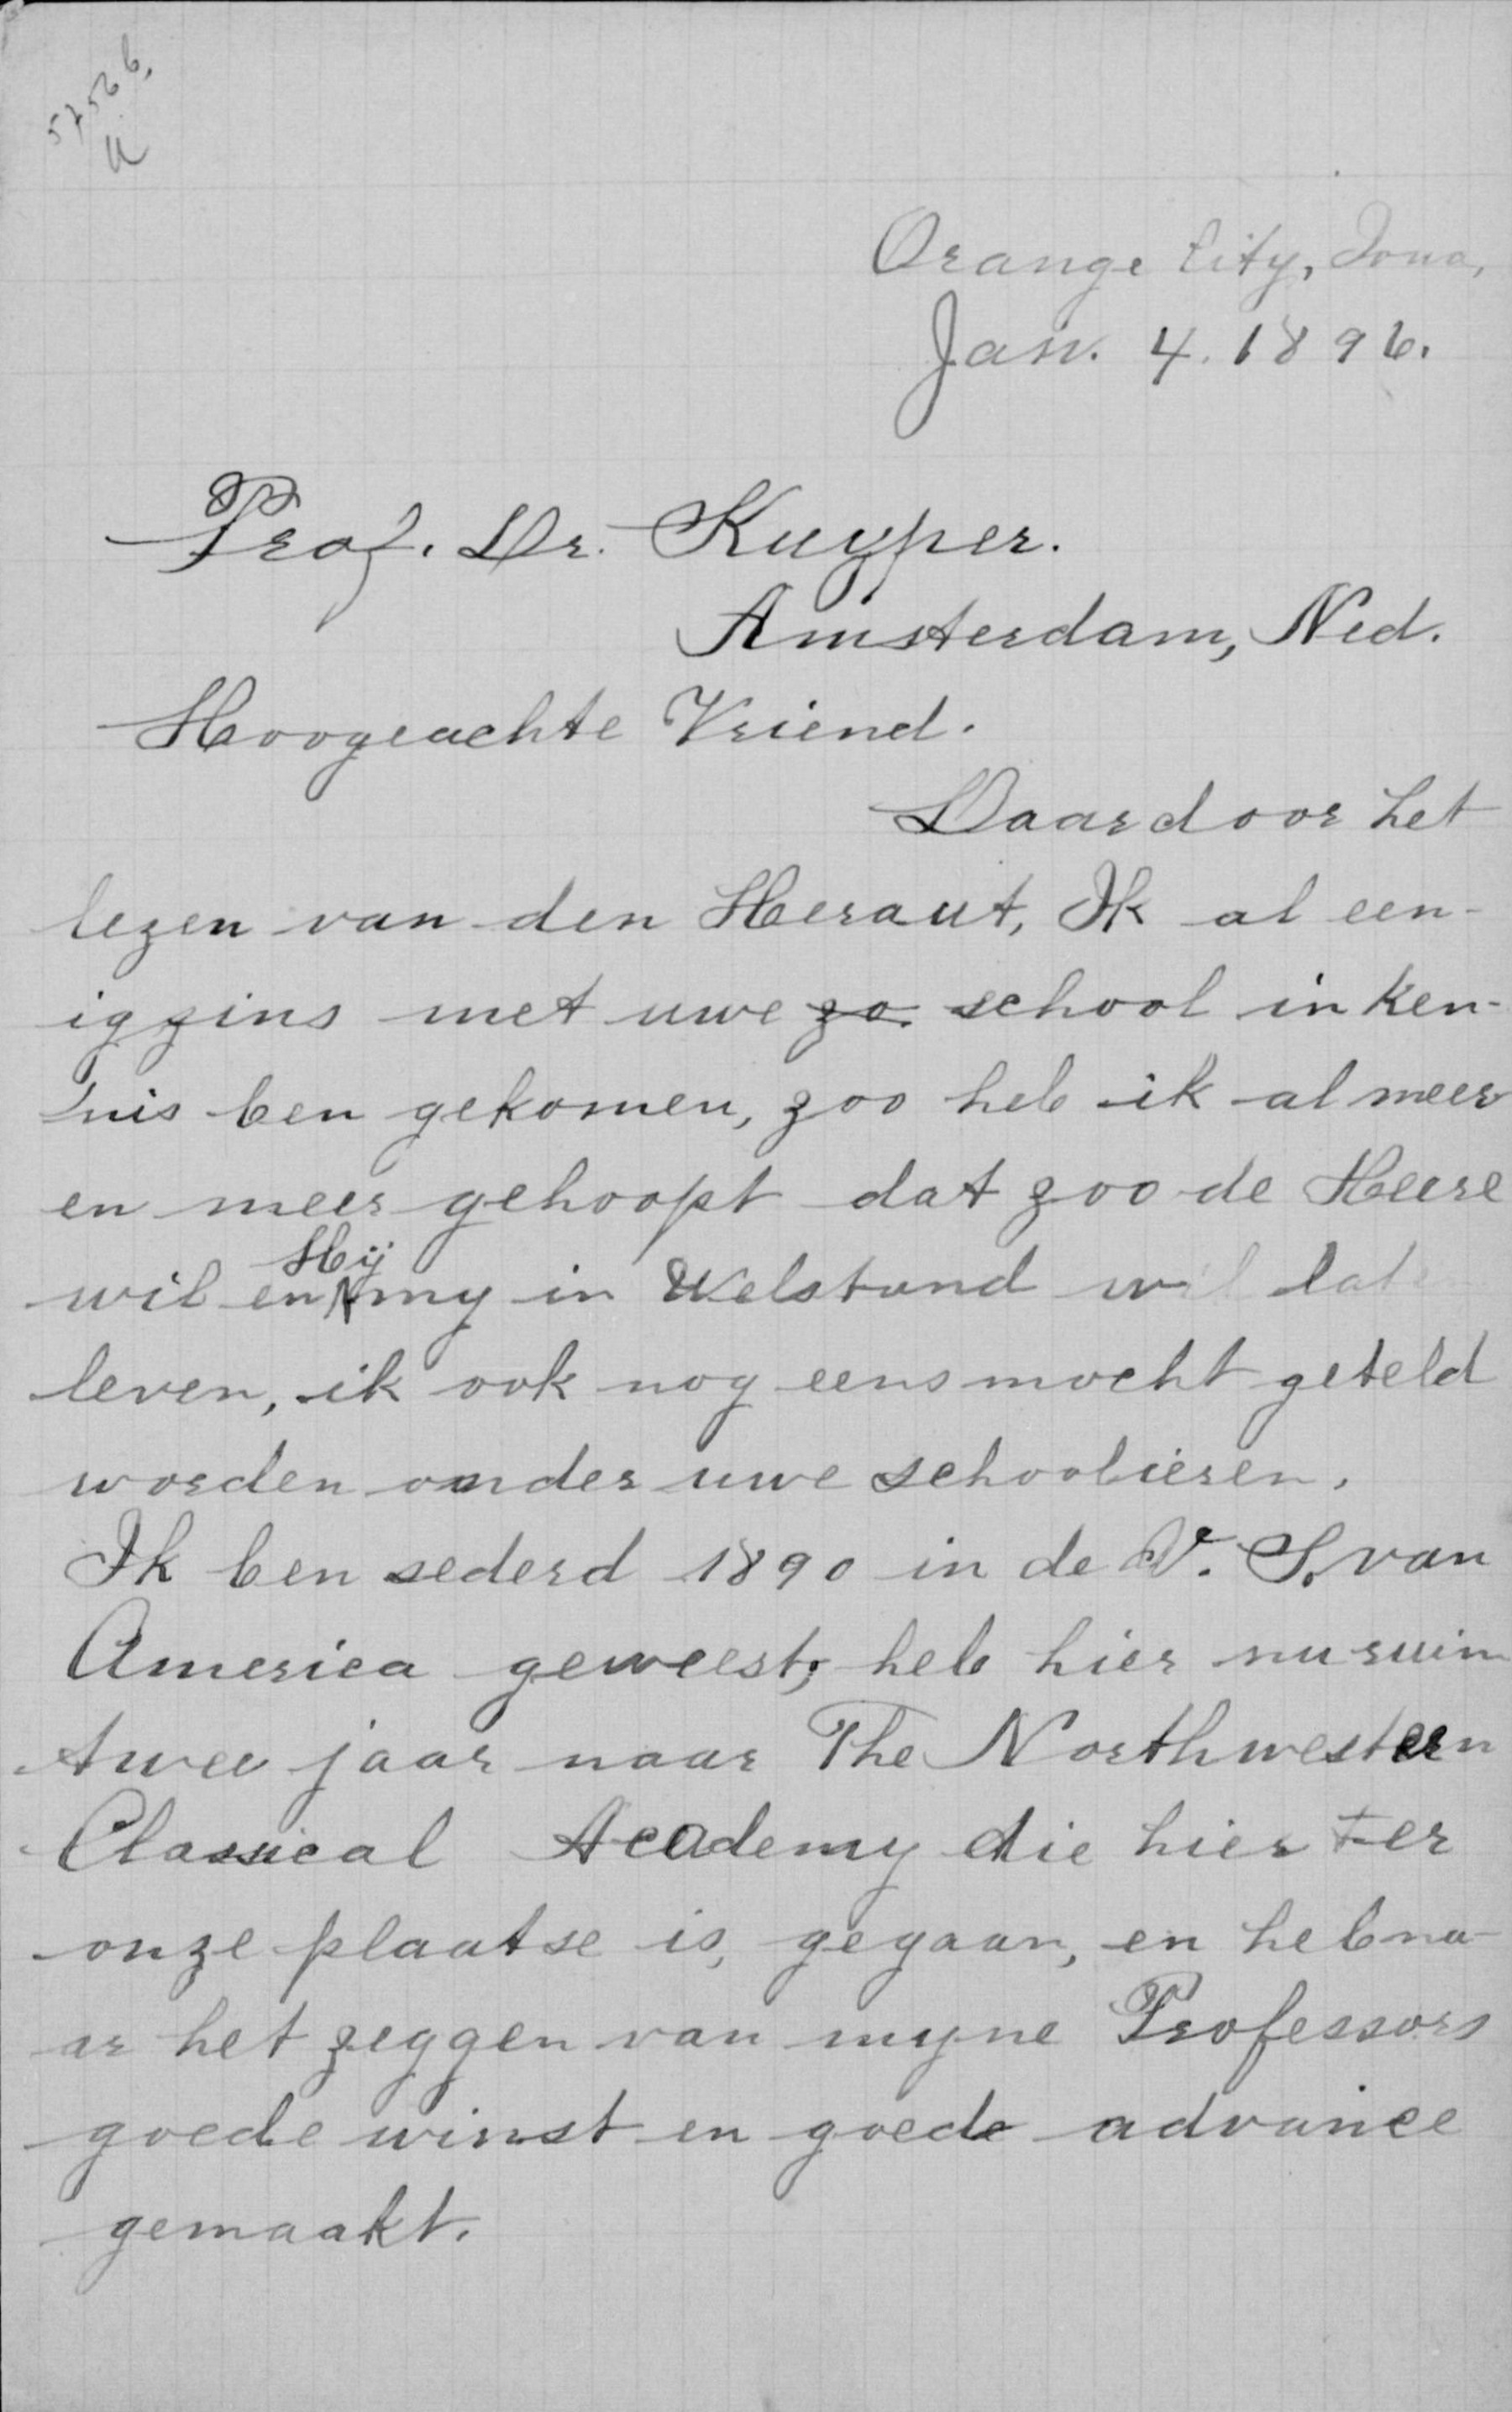 5756 b.
Orange City, Iowa,
Jan. 4. 1896.
Prof. Dr. Kuyper.
Amsterdam, Ned.
Hoogeachte Vriend.
Daar door het
lezen van den Heraut, Ik al een-
igzins met uwe zo. school in ken-
nis ben gekomen, zoo heb ik al meer
en meer gehoopt dat zoo de Heere
wil en Hij my in Welstand wil
leven, ik ook nog eens mocht geteld
worden onder uwe schoolieren.
Ik ben sederd 1890 in de V. S. van
America geweest; heb hier nu ruim
twee jaar naar The Northwestern
Classical Academy die hier ter
onze plaatse is, gegaan, en heb na-
ar het zeggen van myne Professors
goede winst en goede advance
gemaakt.